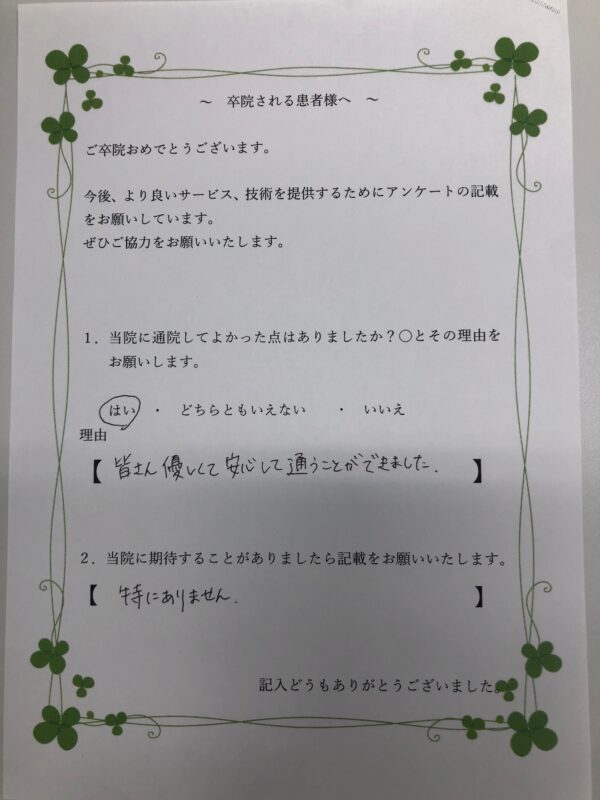 ～　卒院される患者様へ　～
ご卒院おめでとうございます。
今後、より良いサービス、技術を提供するためにアンケートの記載
をお願いしています。
ぜひご協力をお願いいたします。
１．当院に通院してよかった点はありましたか？〇とその理由を
お願いします。
はい　・　どちらともいえない　　・　いいえ
理由
【 皆さん優しくて安心して通うことができました. 】
２．当院に期待することがありましたら記載をお願いいたします。
【 特にありません. 】
記入どうもありがとうございました。